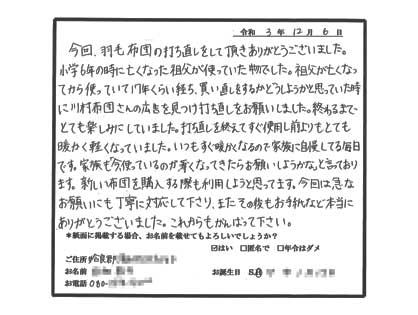 令和 3年 12月 6日
今回、羽毛布団の打ち直しをして頂きありがとうございました。
小学6年の時に亡くなった祖父が使っていた物でした。祖父が亡くなっ
てから使っていて17年くらい経ち、買い直しをするかどうしようかと思っていた時
に川村布団さんの広告を見つけ打ち直しをお願いしました。終わるまで
とても楽しみにしていました。打ち直しを終えてすぐ使用し前よりもとても
暖かく軽くなっていました。いつもすぐ暖かくなるので家族に自慢してる毎日
です。家族も「今使っているのが薄くなってきたらお願いしようかな」と言っており
ます。新しい布団を購入する際も利用しようと思ってます。今回は急な
お願いにも丁寧に対応して下さり、またその後もお手紙など本当に
ありがとうございました。これからもがんばって下さい。
*紙面に掲載する場合、お名前を載せてもよろしいでしょうか?
☑はい □匿名で □年令はダメ
ご住所
お名前 お誕生日 S.
お電話 080-